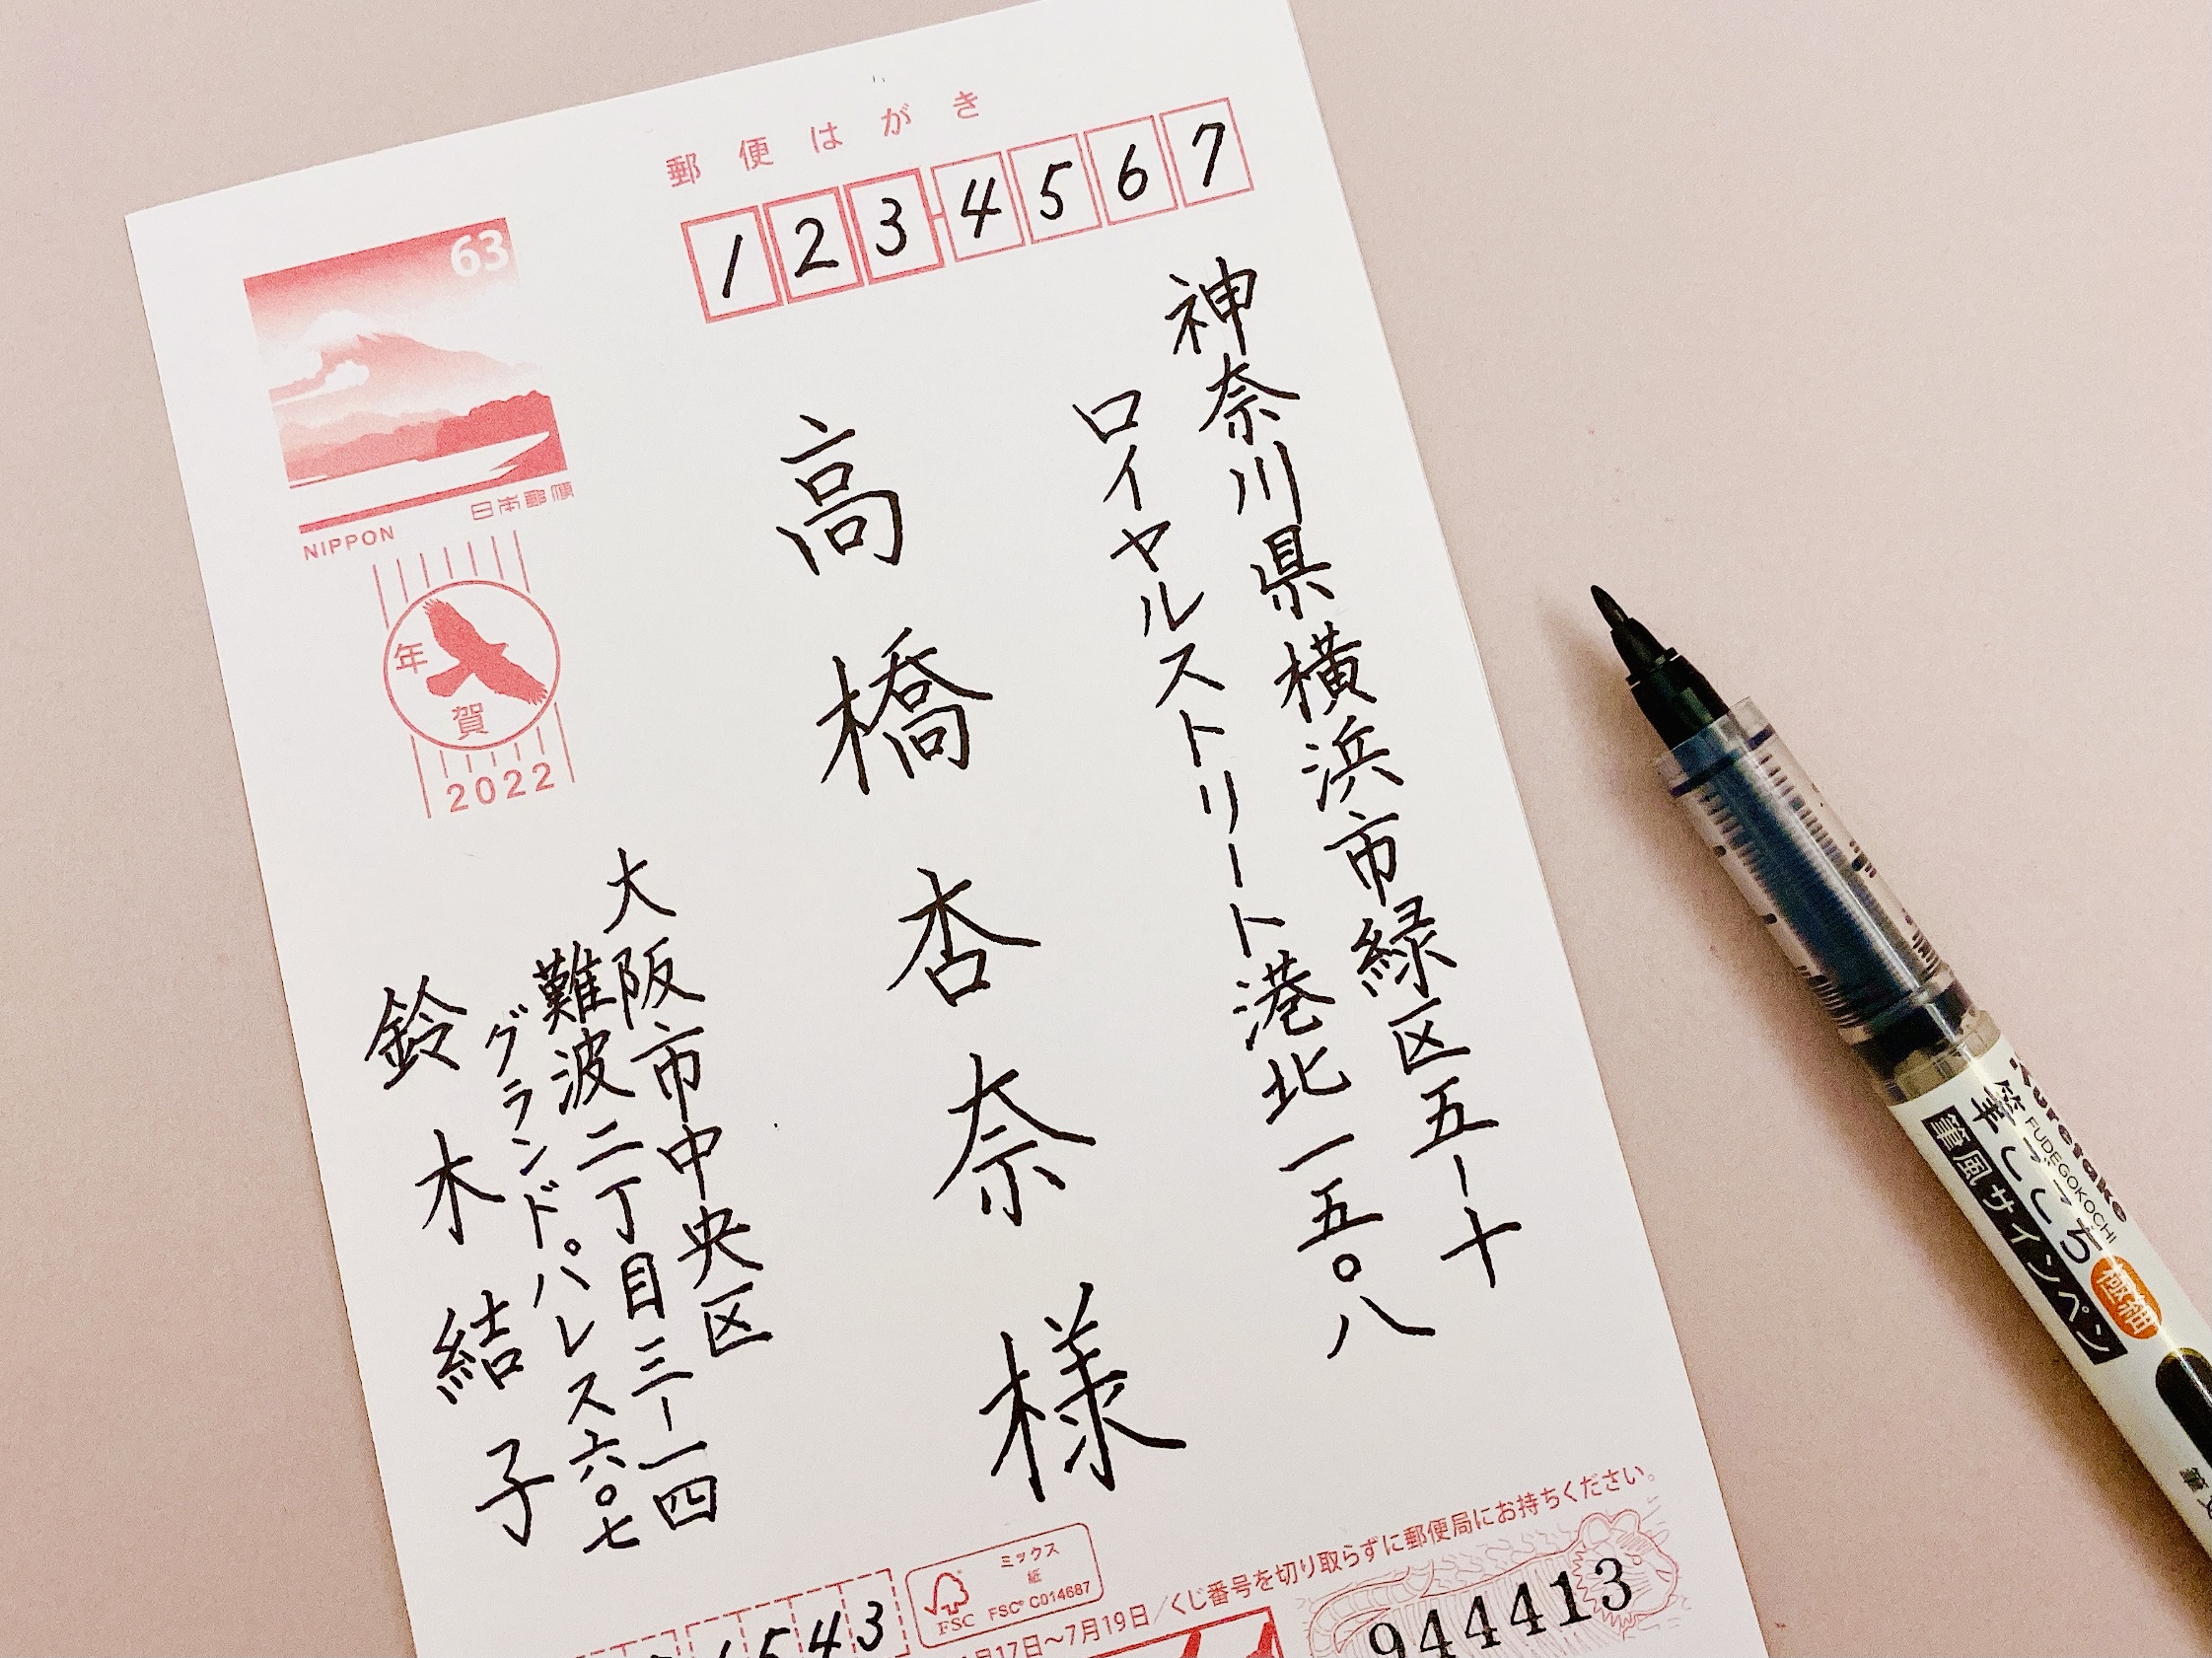 郵便はがき
1234567
神奈川県横浜市緑区五ー十
ロイヤルストリート港北一五〇八
高橋杏奈様
63
日本郵便
NIPPON
年賀
2022
大阪市中央区
難波二丁目三ー一四
グランドパレス六〇七
鈴木結子
543
ミックス
紙
FSC
FSC® C014687
月17日～7月19日/くじ番号を切り取らずに郵便局にお持ちください。
944413
Kuretake
筆ごこち
FUDEGOKOCHI
極細
筆風サインペン